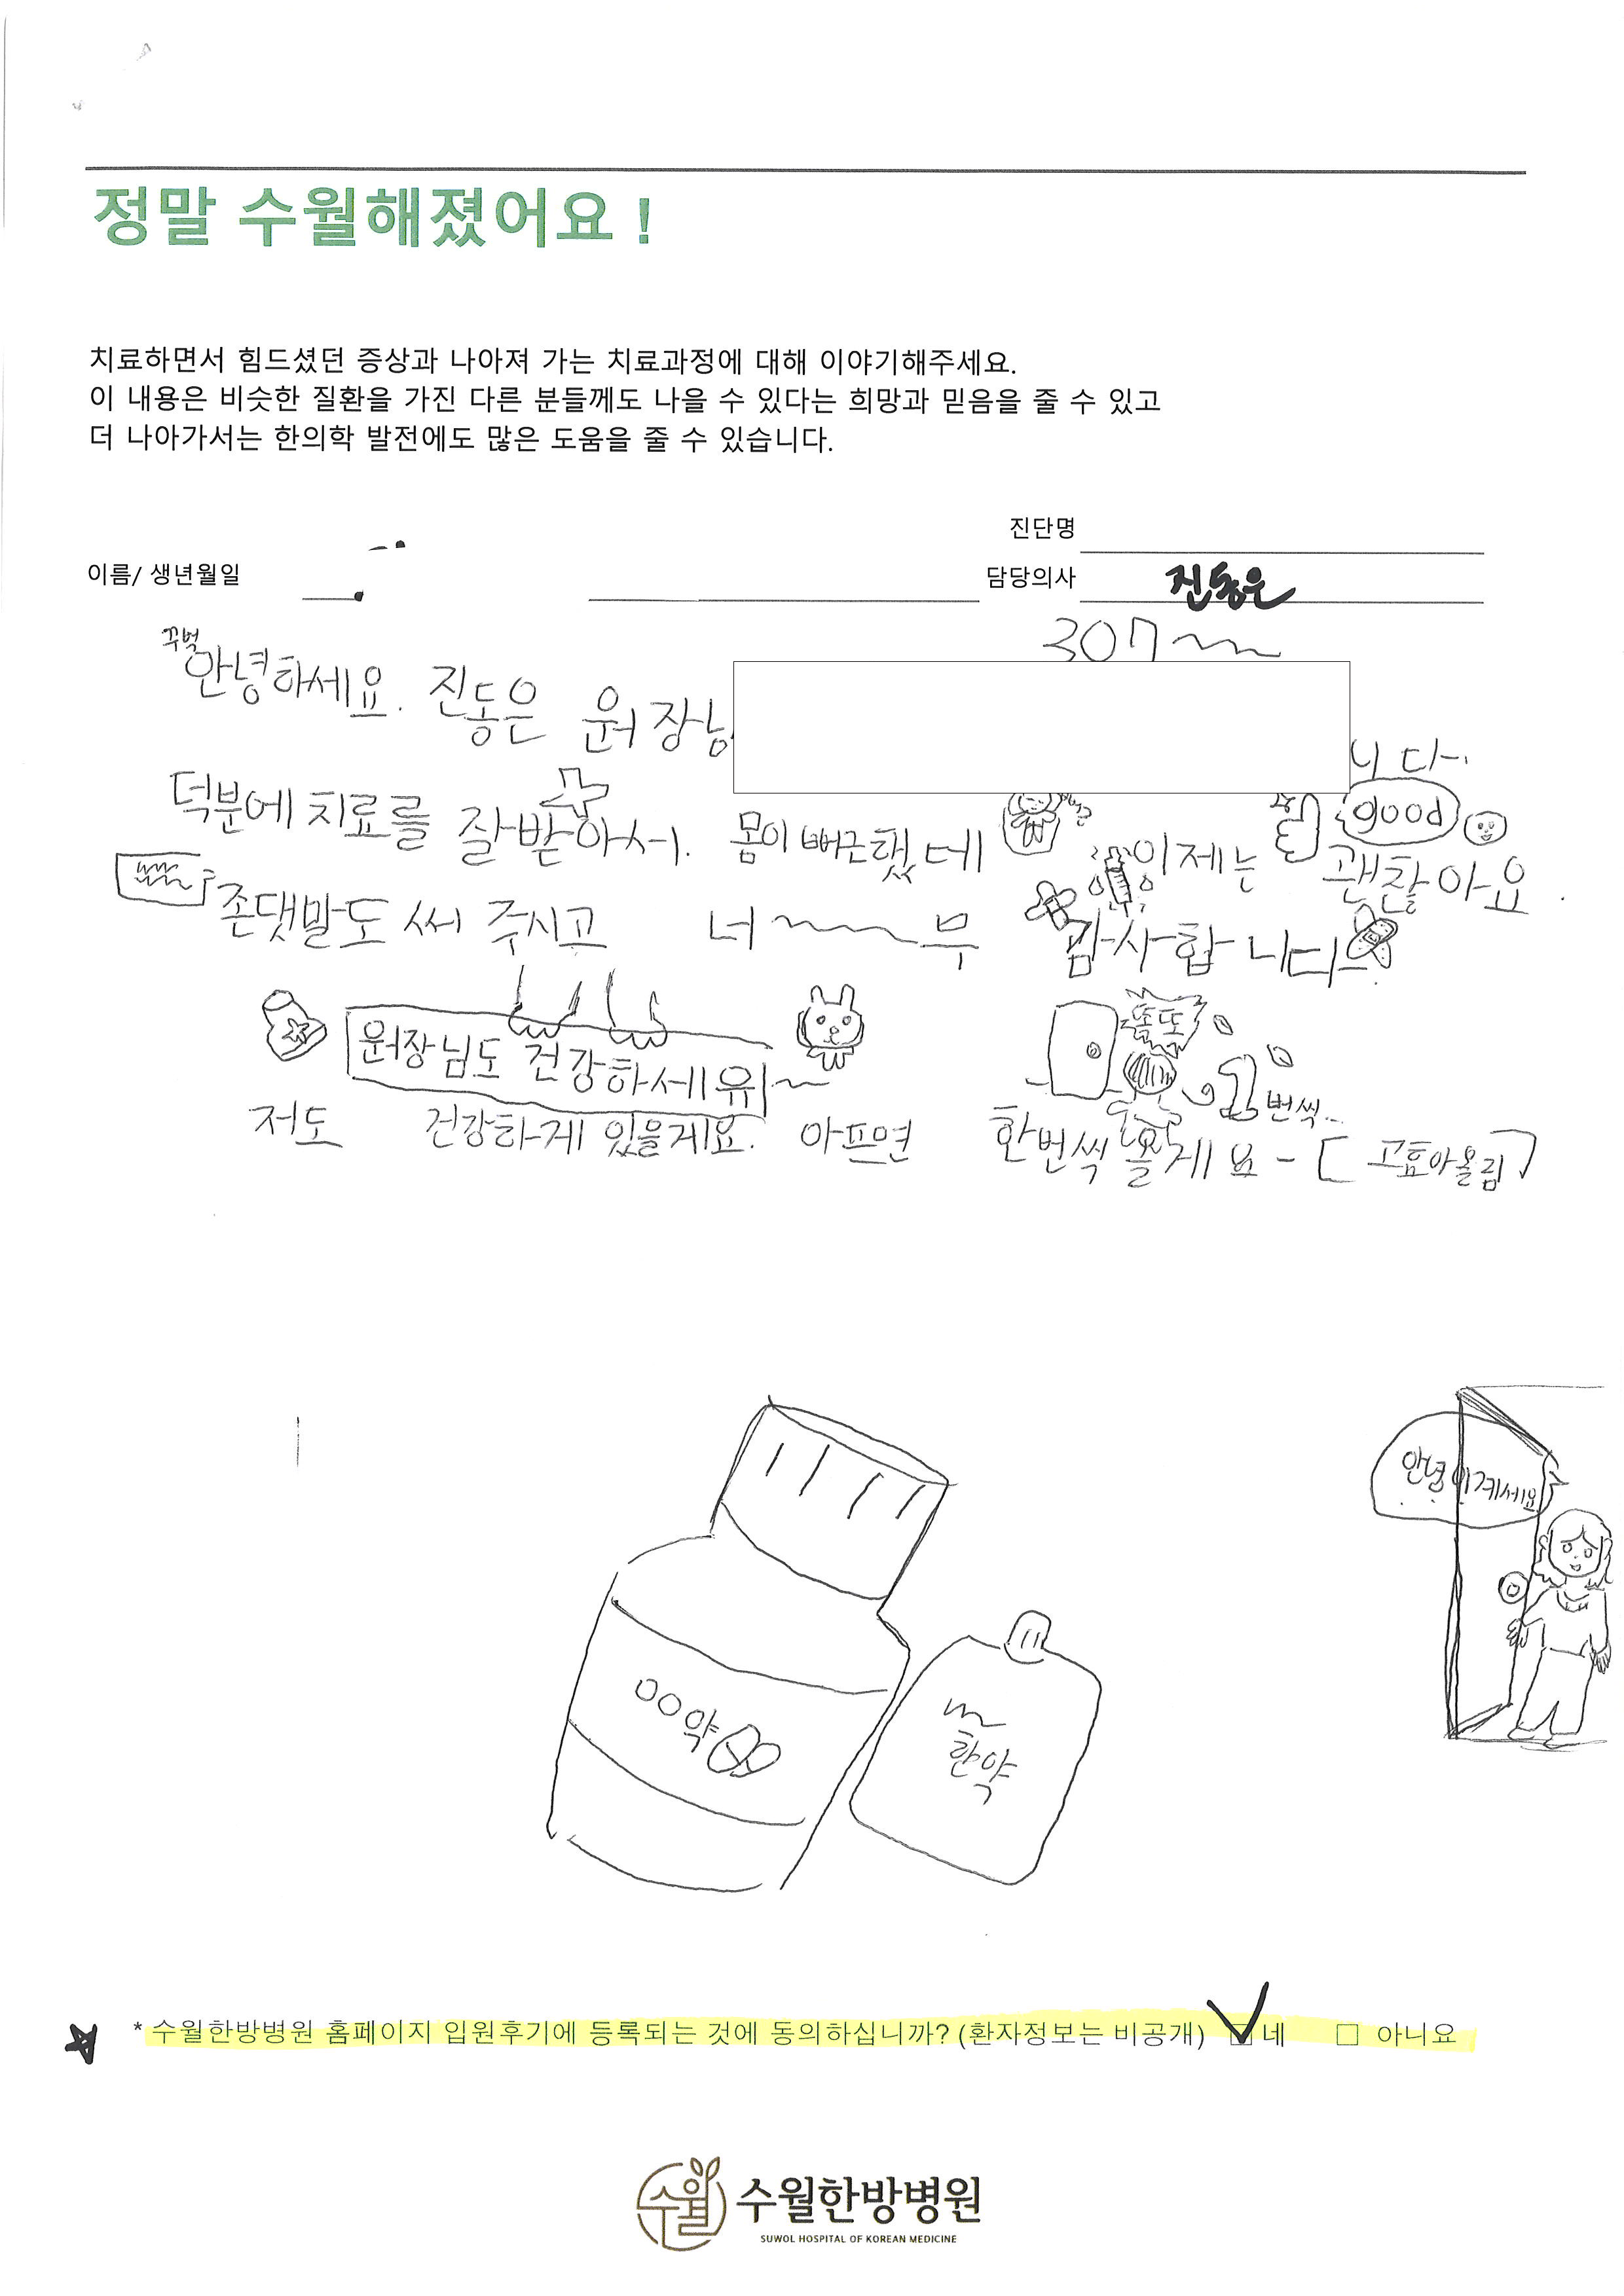 정말 수월해졌어요 !
치료하면서 힘드셨던 증상과 나아져 가는 치료과정에 대해 이야기해주세요.
이 내용은 비슷한 질환을 가진 다른 분들께도 나을 수 있다는 희망과 믿음을 줄 수 있고
더 나아가서는 한의학 발전에도 많은 도움을 줄 수 있습니다.
진단명
이름/ 생년월일
담당의사 진동은
307
꾸벅
안녕하세요. 진동은 원장님
니다.
덕분에 치료를 잘받아서. 몸이 뻐근했는데 이제는 괜찮아요.
good
존댓말도 써 주시고 너~무 감사합니다.
원장님도 건강하세유~
똑또
번씩..
저도 건강하게 있을게요. 아프면 한번씩 올게요 - [고효아올림]
안녕히계세요
OO약
환약
* 수월한방병원 홈페이지 입원후기에 등록되는 것에 동의하십니까? (환자정보는 비공개) ☑ 네 □ 아니요
수월 수월한방병원
SUWOL HOSPITAL OF KOREAN MEDICINE